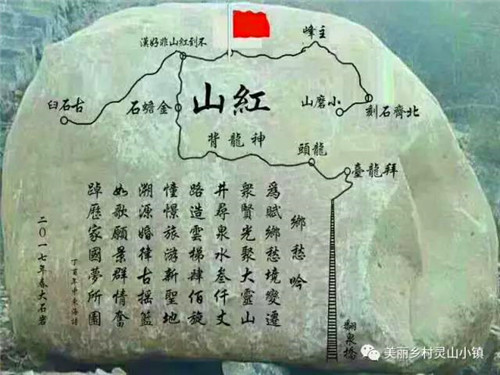 不到紅山非好漢
主峰
古石臼
金蟾石
紅山
小磨山
北齊石刻
神龍背
龍頭
拜龍臺
鄉愁吟
為賦鄉愁境變遷
衆賢光聚大靈山
井尋泉水叁仟丈
路造雲梯肆佰旋
憧憬旅游新聖地
溯源婚律古搖籃
如歌願景群情奮
踔厲家國夢所圓
二〇一七年春大石岩
泉橋
美丽乡村灵山小镇